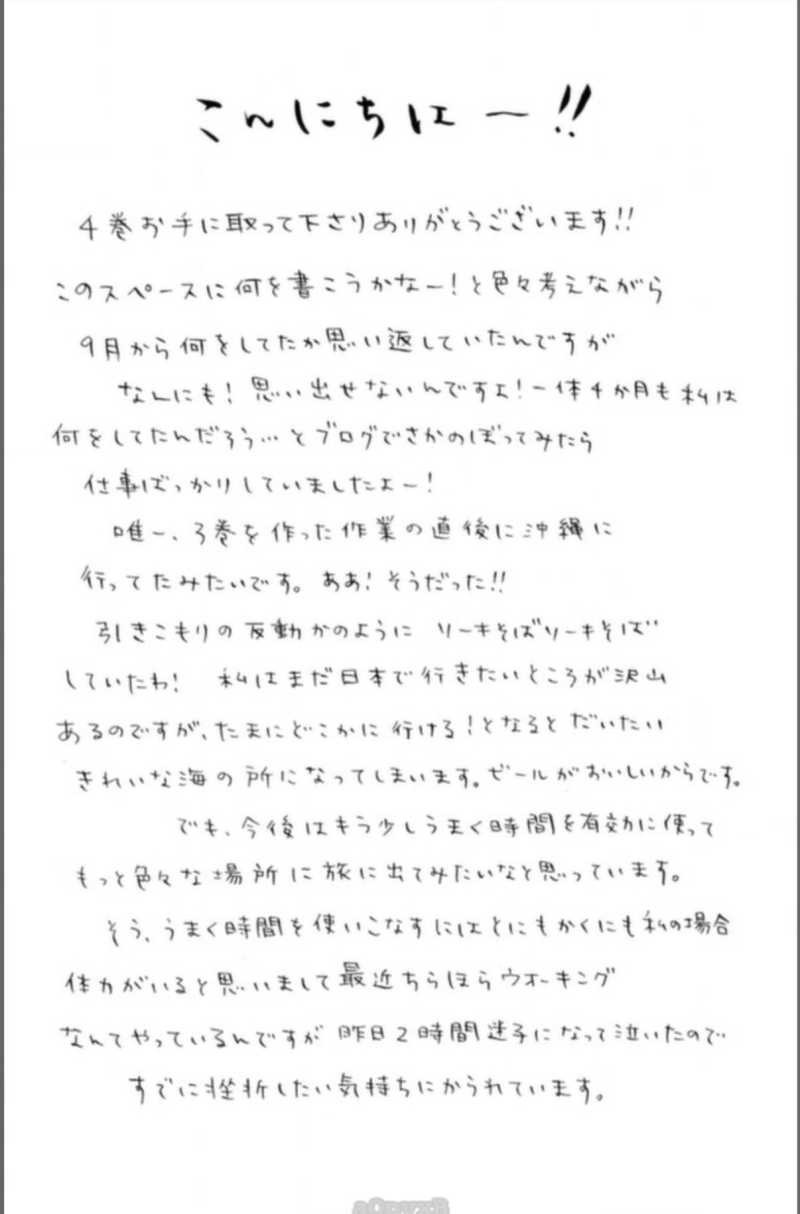 こんにちはー!!
4巻お手に取って下さりありがとうございます!!
このスペースに何を書こうかなー!と色々考えながら
9月から何をしてたか思い返していたんですが
なんにも!思い出せないんですよ!一体4か月も私は
何をしてたんだろう…とブログでさかのぼってみたら
仕事ばっかりしていましたよー!
唯一、3巻を作った作業の直後に沖縄に
行ってたみたいです。ああ!そうだった!!
引きこもりの反動かのように ソーキそばソーキそば
していたわ! 私はまだ日本で行きたいところが沢山
あるのですが、たまにどこかに行ける!となるとだいたい
きれいな海の所になってしまいます。ビールがおいしいからです。
でも、今後はもう少しうまく時間を有効に使って
もっと色々な場所に旅に出てみたいなと思っています。
そう、うまく時間を使いこなすにはとにもかくにも私の場合
体力がいると思いまして最近ちらほらウオーキング
なんてやっているんですが昨日2時間迷子になって泣いたので
すでに挫折したい気持ちにかられています。